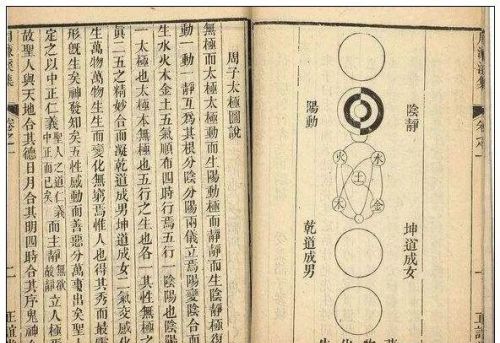 周濂溪集
卷之一
正誼
陰靜
陽動
水
火
土
金
木
坤道成女
乾道成男
周子太極圖說
無極而太極太極動而生陽動極而靜靜而生陰靜極
動一動一靜互為其根分陰分陽兩儀立焉陽變陰合而
生水火木金土五氣順布四時行焉五行一陰陽也陰陽
一太極也太極本無極也五行之生也各一其性無極之
眞二五之精妙合而凝乾道成男坤道成女二氣交感化
生萬物萬物生生而變化無窮焉惟人也得其秀而最靈
形旣生矣神發知矣五性感動而善惡分萬事出矣聖人
定之以中正仁義聖人之道仁義中正而已矣而主靜無欲故靜立人極焉
故聖人與天地合其德日月合其明四時合其序鬼神
周濂溪集
卷之一
一
正誼堂